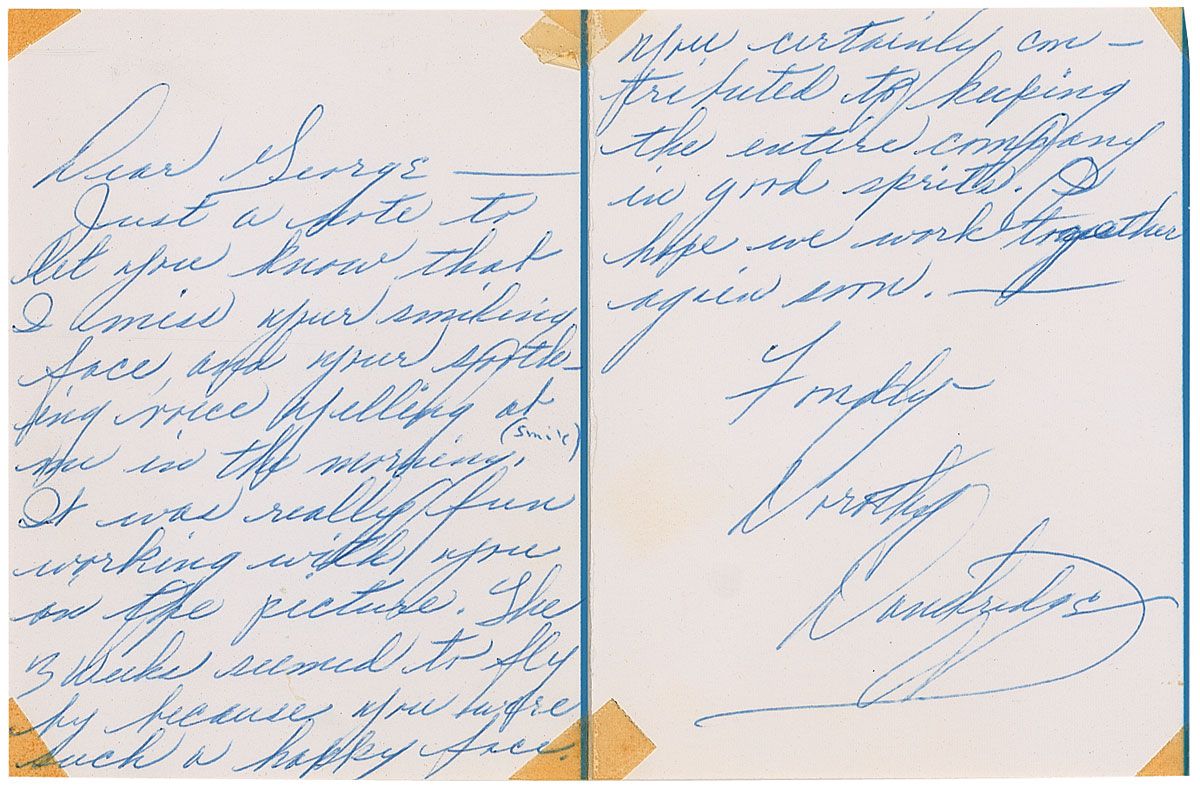 Dear George —
Just a note to
let you know that
I miss your smiling
face, and your sooth-
ing voice yelling at
(smile)
me in the morning.
It was really fun
working with you
on the picture. The
3 weeks seemed to fly
by because you were
such a happy face.
you certainly con-
tributed to keeping
the entire company
in good sprits. I
hope we work together
again soon. —
Fondly
Dorothy
Dandridge